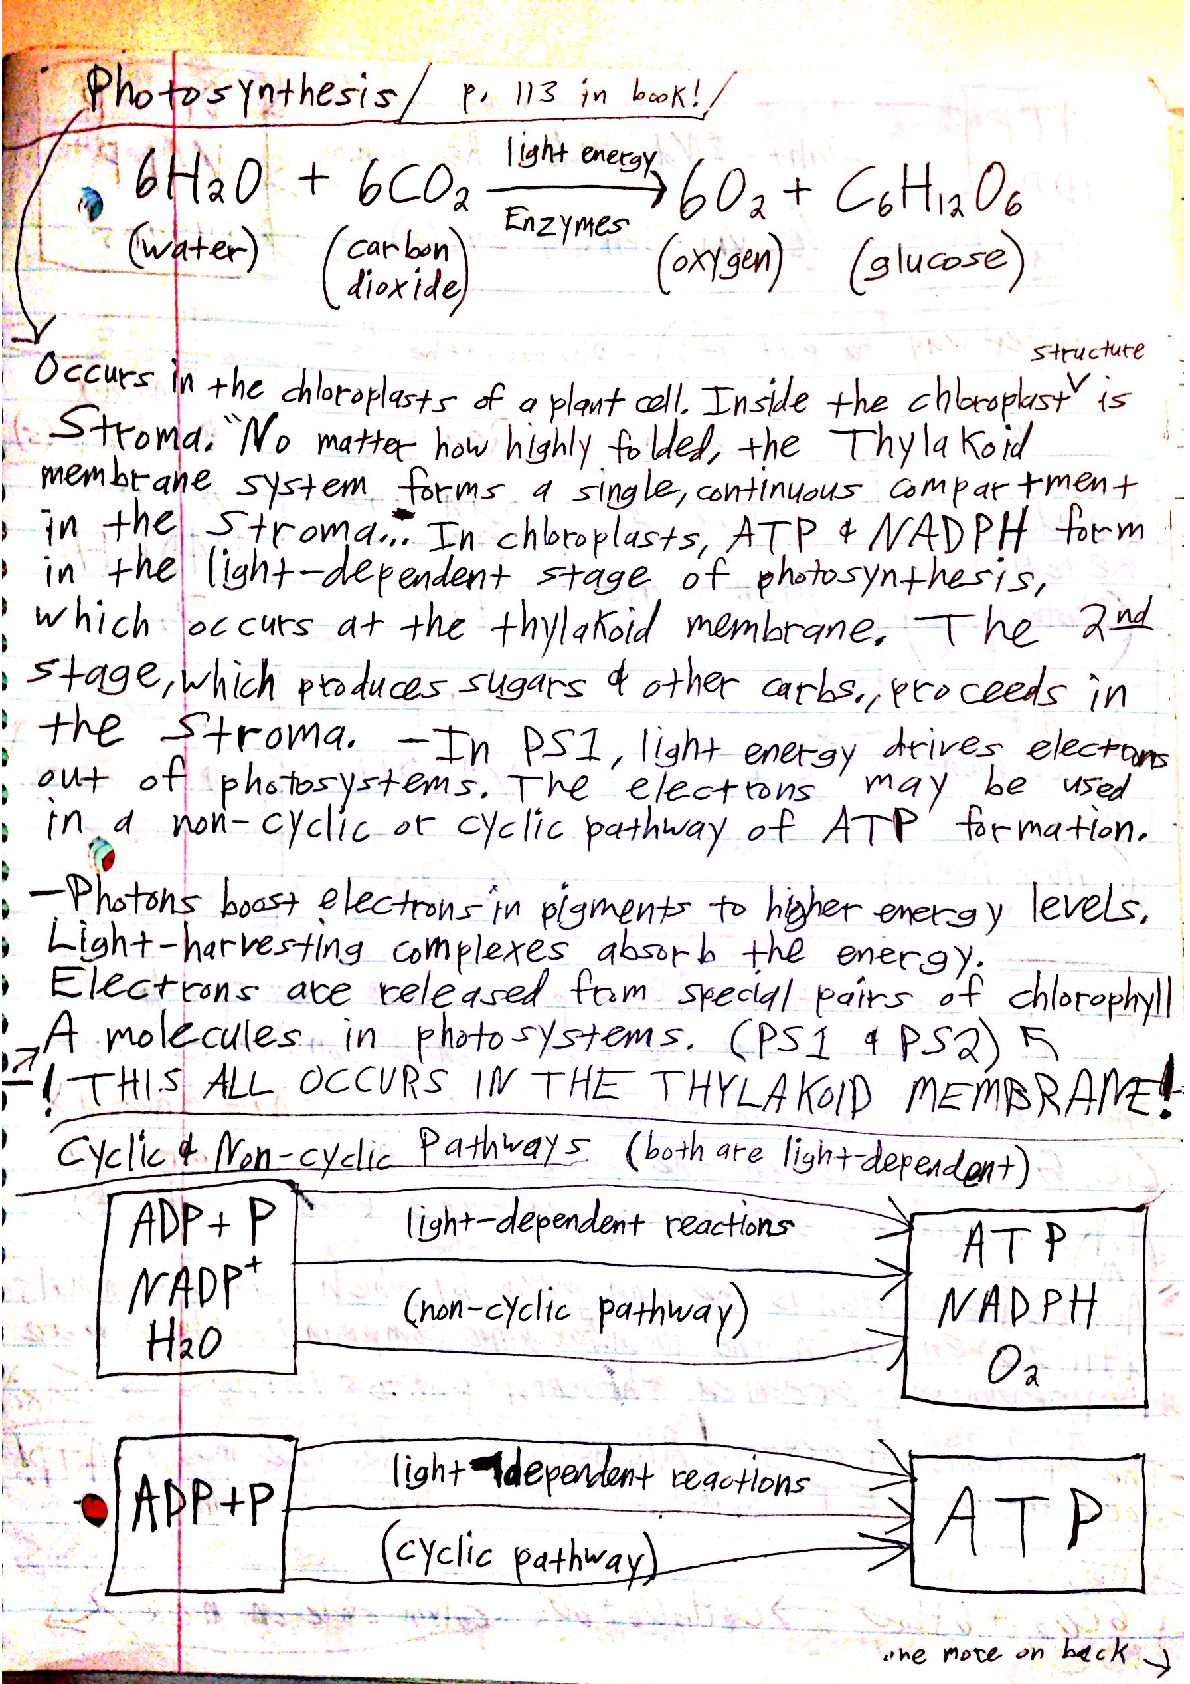 Photosynthesis/ p. 113 in book!/
6H2O + 6CO2 light energy Enzymes 6O2 + C6H12O6
(water) (carbon dioxide) (oxygen) (glucose)
structure
Occurs in the chloroplasts of a plant cell. Inside the chloroplast ˅ is
Stroma. "No matter how highly folded, the Thylakoid
membrane system forms a single, continuous compartment
in the stroma... In chloroplasts, ATP & NADPH form
in the light-dependent stage of photosynthesis,
which occurs at the thylakoid membrane. The 2nd
stage, which produces sugars & other carbs., proceeds in
the stroma. - In PS1, light energy drives electrons
out of photosystems. The electrons may be used
in a non-cyclic or cyclic pathway of ATP formation.
- Photons boost electrons in pigments to higher energy levels.
Light-harvesting complexes absorb the energy.
Electrons are released from special pairs of chlorophyll
A molecules in photosystems. (PS1 & PS2)
-! THIS ALL OCCURS IN THE THYLAKOID MEMBRANE!
Cyclic & Non-cyclic Pathways (both are light-dependent)
ADP + P
NADP+
H2O
light-dependent reactions
(non-cyclic pathway)
ATP
NADPH
O2
ADP+P
light-dependent reactions
(cyclic pathway)
ATP
one more on back